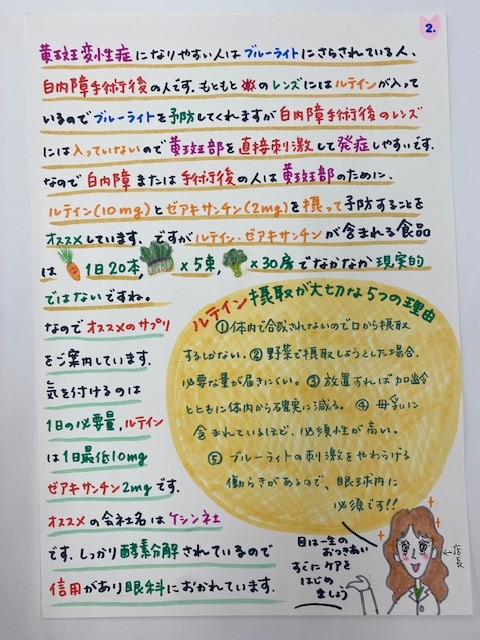 2.
黄斑変性症になりやすい人はブルーライトにさらされている人、
白内障手術後の人です。もともとのレンズにはルテインが入って
いるのでブルーライトを予防してくれますが白内障手術後のレンズ
には入っていないので黄斑部を直接刺激して発症しやすいです。
なので白内障または手術後の人は黄斑部のために、
ルテイン(10mg)とゼアキサンチン(2mg)を摂って予防することを
オススメしています。ですがルテイン・ゼアキサンチンが含まれる食品
は 1日20本、 ×5束、 ×30房でなかなか現実的
ではないですね。
なのでオススメのサプリ
をご案内しています。
気を付けるのは
1日の必要量、ルテイン
は1日最低10mg
ゼアキサンチン2mgです。
オススメの会社名はケシン社
です。しっかり酵素分解されているので
信用があり眼科におかれています。
ルテイン摂取が大切な5つの理由
①体内で合成されないので口から摂取
するしかない。②野菜で摂取しようとした場合、
必要な量が届きにくい。③放置すれば加齢
とともに体内から確実に減る。④母乳に
含まれているほど、必須性が高い。
⑤ブルーライトの刺激をやわらげる
働らきがあるので、眼球内に
必須です!!
目は一生の
おつきあい
すぐにケアを
はじめ
ましょう
←店長